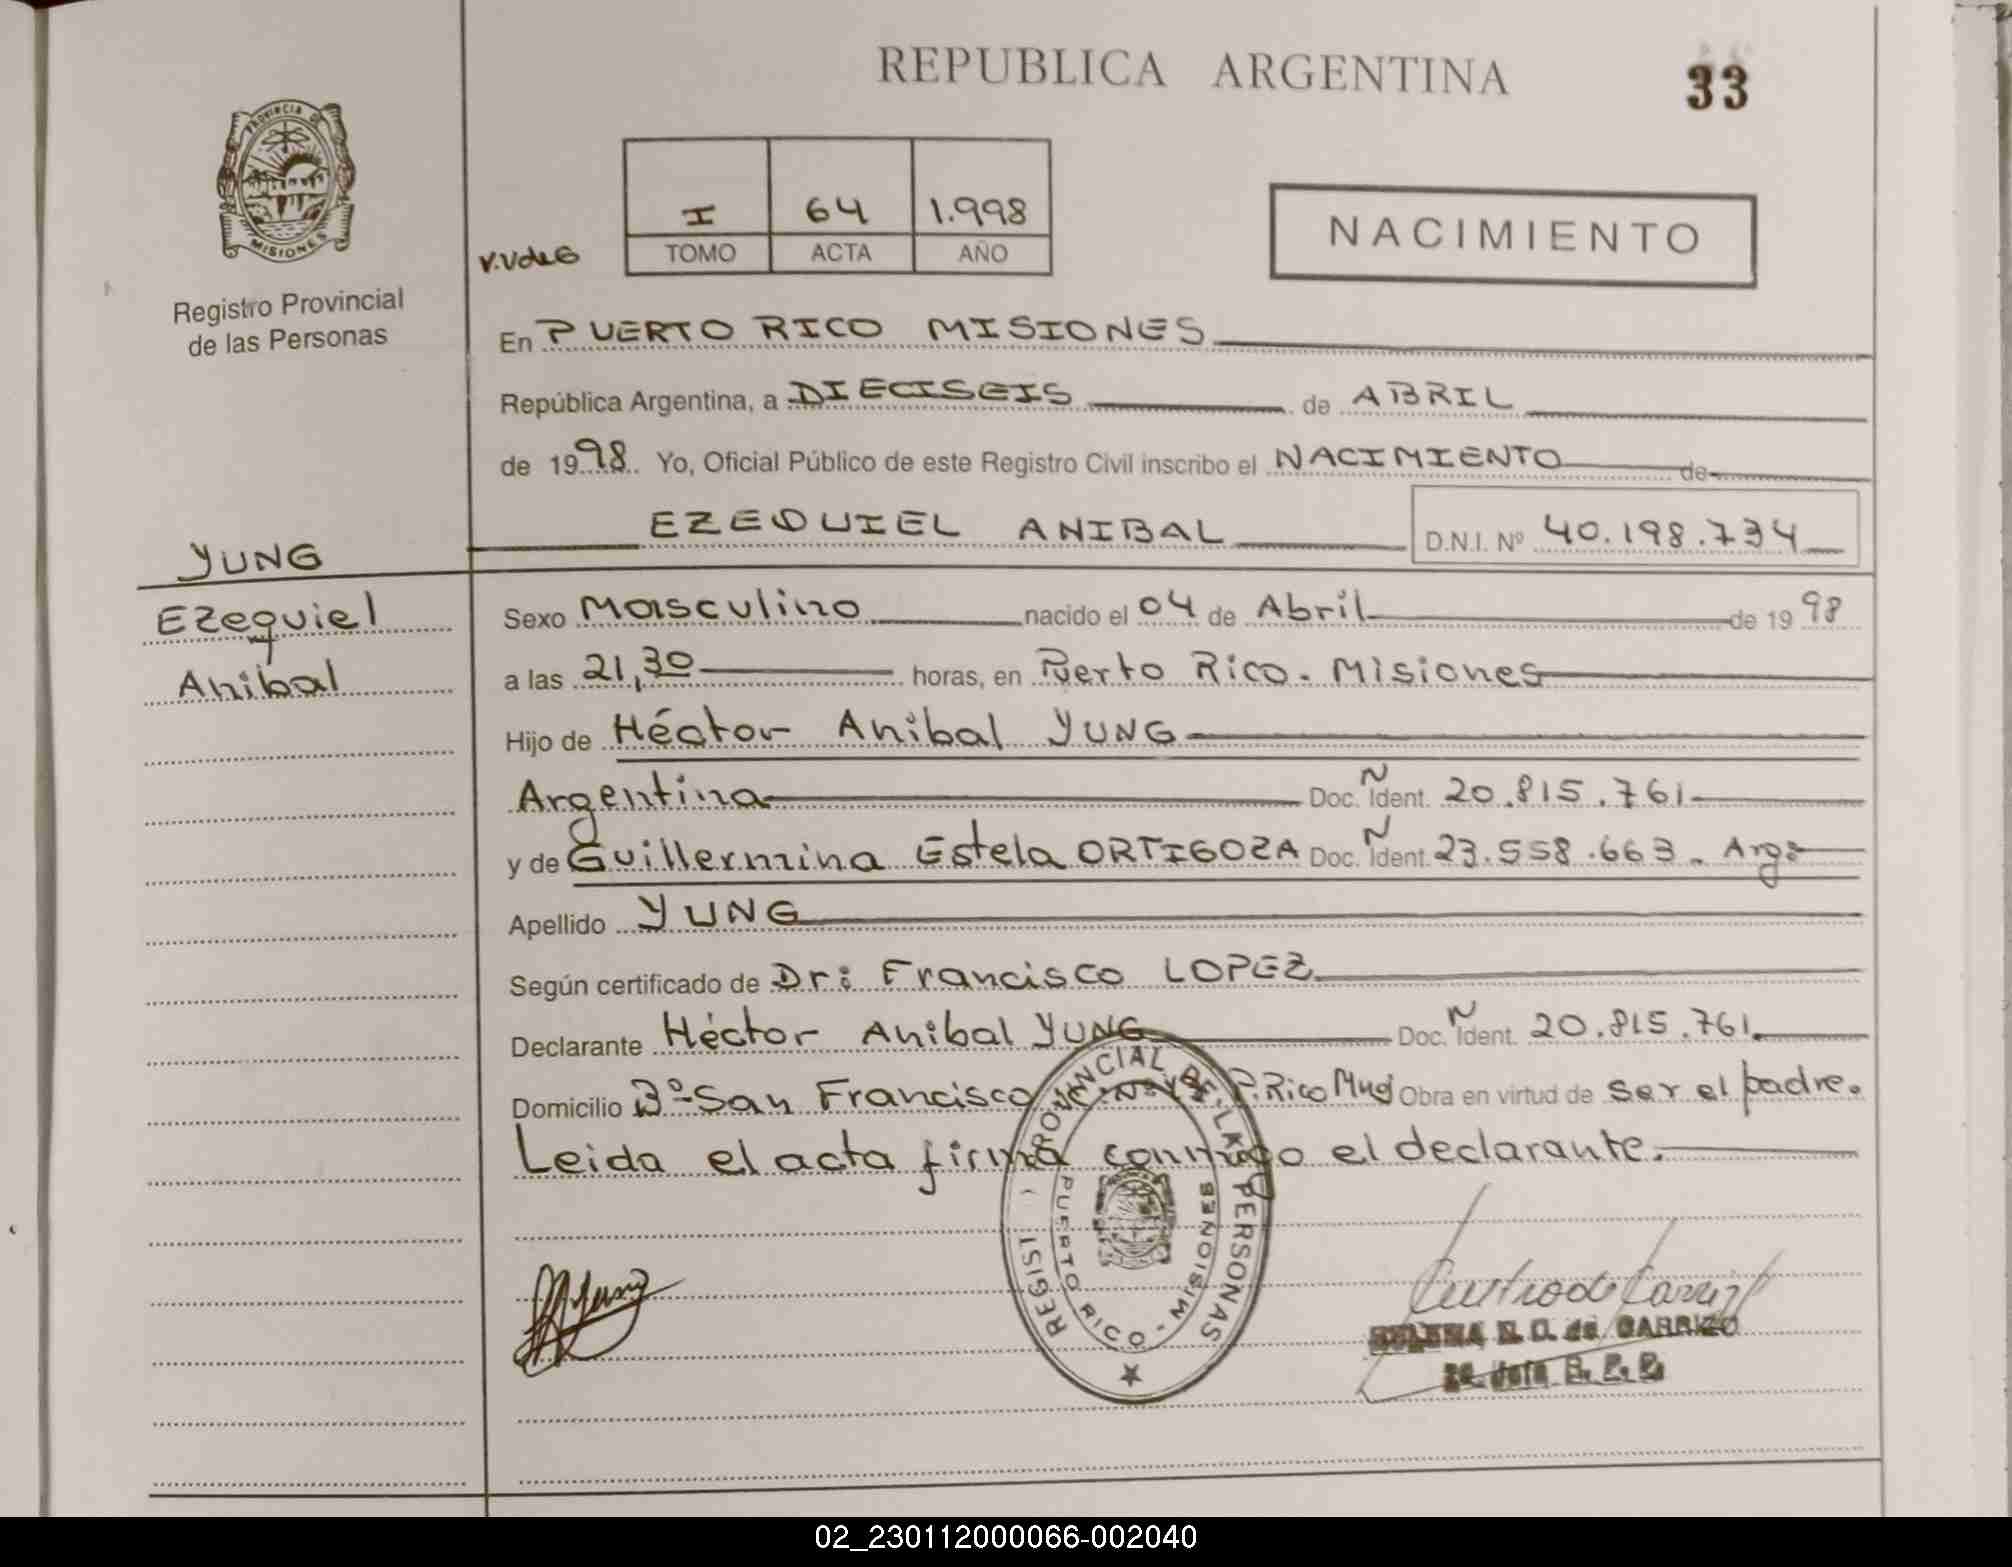 REPUBLICA ARGENTINA
33
PROVINCIA DE
MISIONES
Registro Provincial
de las Personas
I 64 1.998
TOMO ACTA AÑO
NACIMIENTO
En PUERTO RICO MISIONES
República Argentina, a DIECISEIS de ABRIL
de 1998 Yo, Oficial Público de este Registro Civil inscribo el NACIMIENTO de
EZEQUIEL ANIBAL D.N.I. Nº 40.198.734
YUNG
Ezequiel
Anibal
Sexo Masculino nacido el 04 de Abril de 1998
a las 21,30 horas, en Puerto Rico. Misiones
Hijo de Héctor Anibal YUNG
Argentina Doc. Ident. 20.815.761
y de Guillermina Estela ORTIGOZA Doc. Ident. 23.558.663. Arg:
Apellido YUNG
Según certificado de Dr: Francisco LOPEZ
Declarante Héctor Anibal YUNG Doc. Ident. 20.815.761.
Domicilio Bº San Francisco P. Rico Mnes Obra en virtud de ser el padre.
Leida el acta firma conmigo el declarante.
REGISTRO PROVINCIAL DE LAS PERSONAS
PUERTO RICO - MISIONES
de CARRIZO
02_230112000066-002040